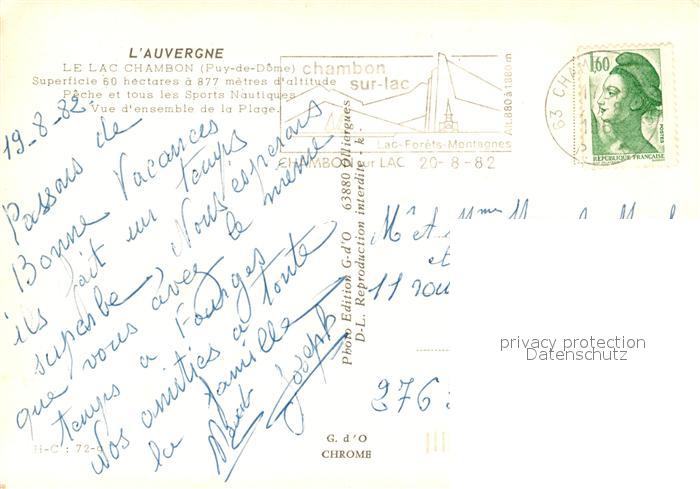 L'AUVERGNE
LE LAC CHAMBON (Puy-de-Dôme)
Superficie 60 héctares à 877 mètres d'altitude
Pêche et tous les Sports Nautiques
Vue d'ensemble de la Plage.
chambon
sur-lac
Alt.880 à 1.880 m
Lac-Forêts-Montagnes
CHAMBON sur LAC 20-8-82
63 CHAM
1,60
POSTES
RÉPUBLIQUE FRANÇAISE
19-8-82.
Passons de
Bonne Vacances
ils fait un temps
superbe, Nous esperons
que vous avez le meme
temps a Fourges
Nos amitiés a toute
la famille
Joseph
Photo Edition G-d'O 63880 Olliergues
D-L. Reproduction interdite - k.
M et Mme
et
11
276
privacy protection
Datenschutz
H-C : 72-
G. d'O
CHROME